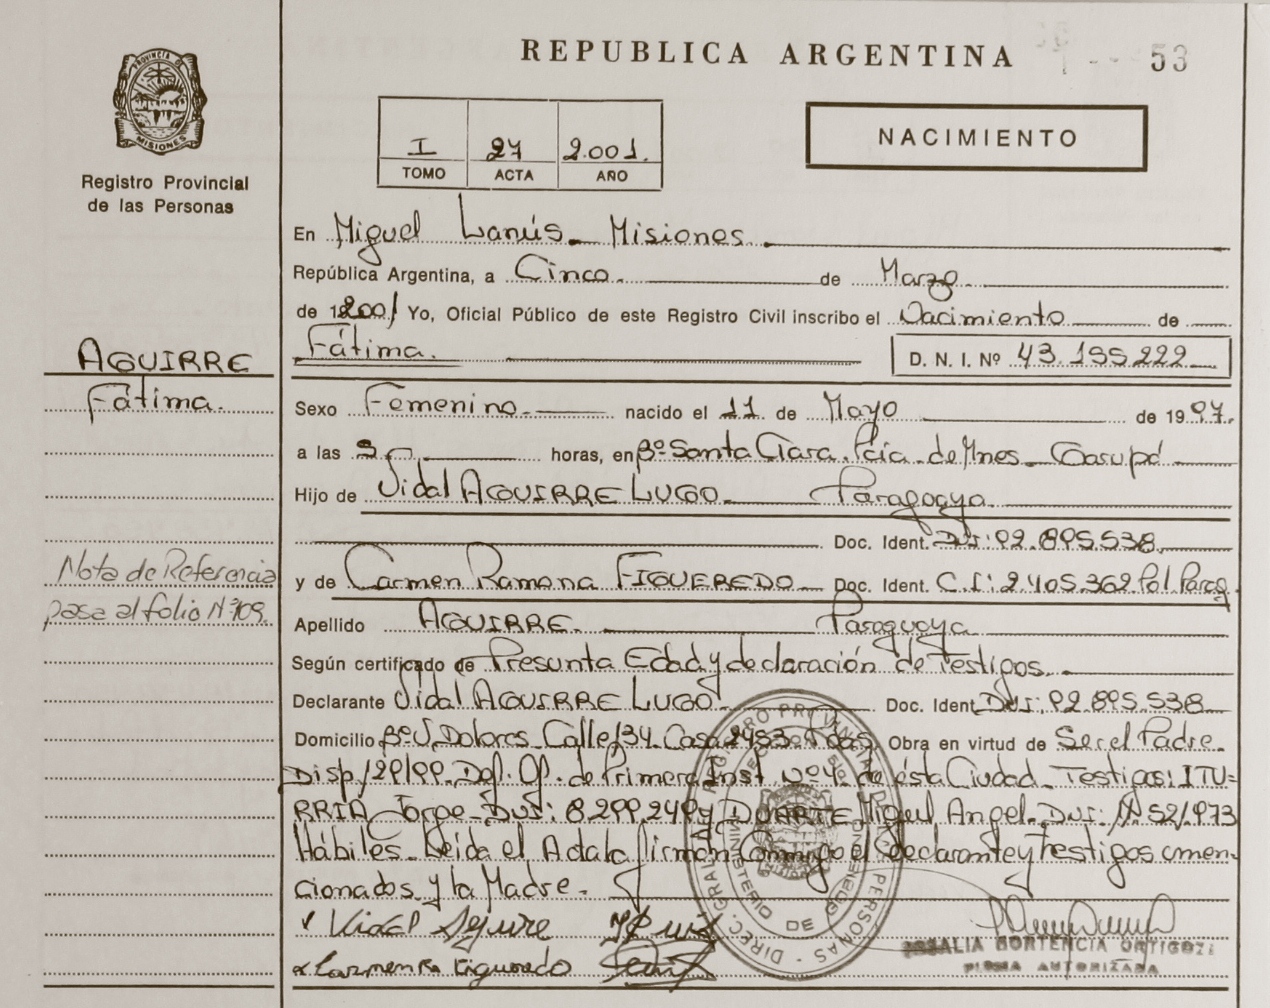 REPUBLICA ARGENTINA 53
PROVINCIA DE MISIONES
Registro Provincial
de las Personas
I 27 2.001.
TOMO ACTA AÑO
NACIMIENTO
En Miguel Lanús - Misiones
República Argentina, a Cinco de Marzo
de 2001 Yo, Oficial Público de este Registro Civil inscribo el Nacimiento de
Fátima. D. N. I. Nº 43.195.222
AGUIRRE
Fátima.
Sexo Femenino nacido el 11 de Mayo de 1997.
a las horas, en Bº Santa Clara. de Garupá
Hijo de Vidal AGUIRRE LUGO Paraguaya
Doc. Ident. 92.895.538
y de Carmen Ramona FIGUEREDO Doc. Ident. C.I: 2.405.362 Pol. Parag.
Apellido AGUIRRE Paraguaya
Según certificado de Presunta Edad y declaración de Testigos.
Declarante Vidal AGUIRRE LUGO Doc. Ident. 92.895.538
Nota de Referencia
pasa al folio Nº 109.
Domicilio Bº V. Dolores Calle 134 Casa Obra en virtud de Ser el Padre.
Disp. de Primera Inst. Nº 4 de ésta Ciudad. Testigos: ITU-
RRIA Jorge 8.299.249 y DUARTE Miguel Angel
Hábiles. Leída el Acta la firman Conmigo el declarante y testigos men-
cionados y la Madre.
Vidal Aguirre
Carmen R Figueredo
ROSALIA HORTENCIA ORTIGOZA
FIRMA AUTORIZADA